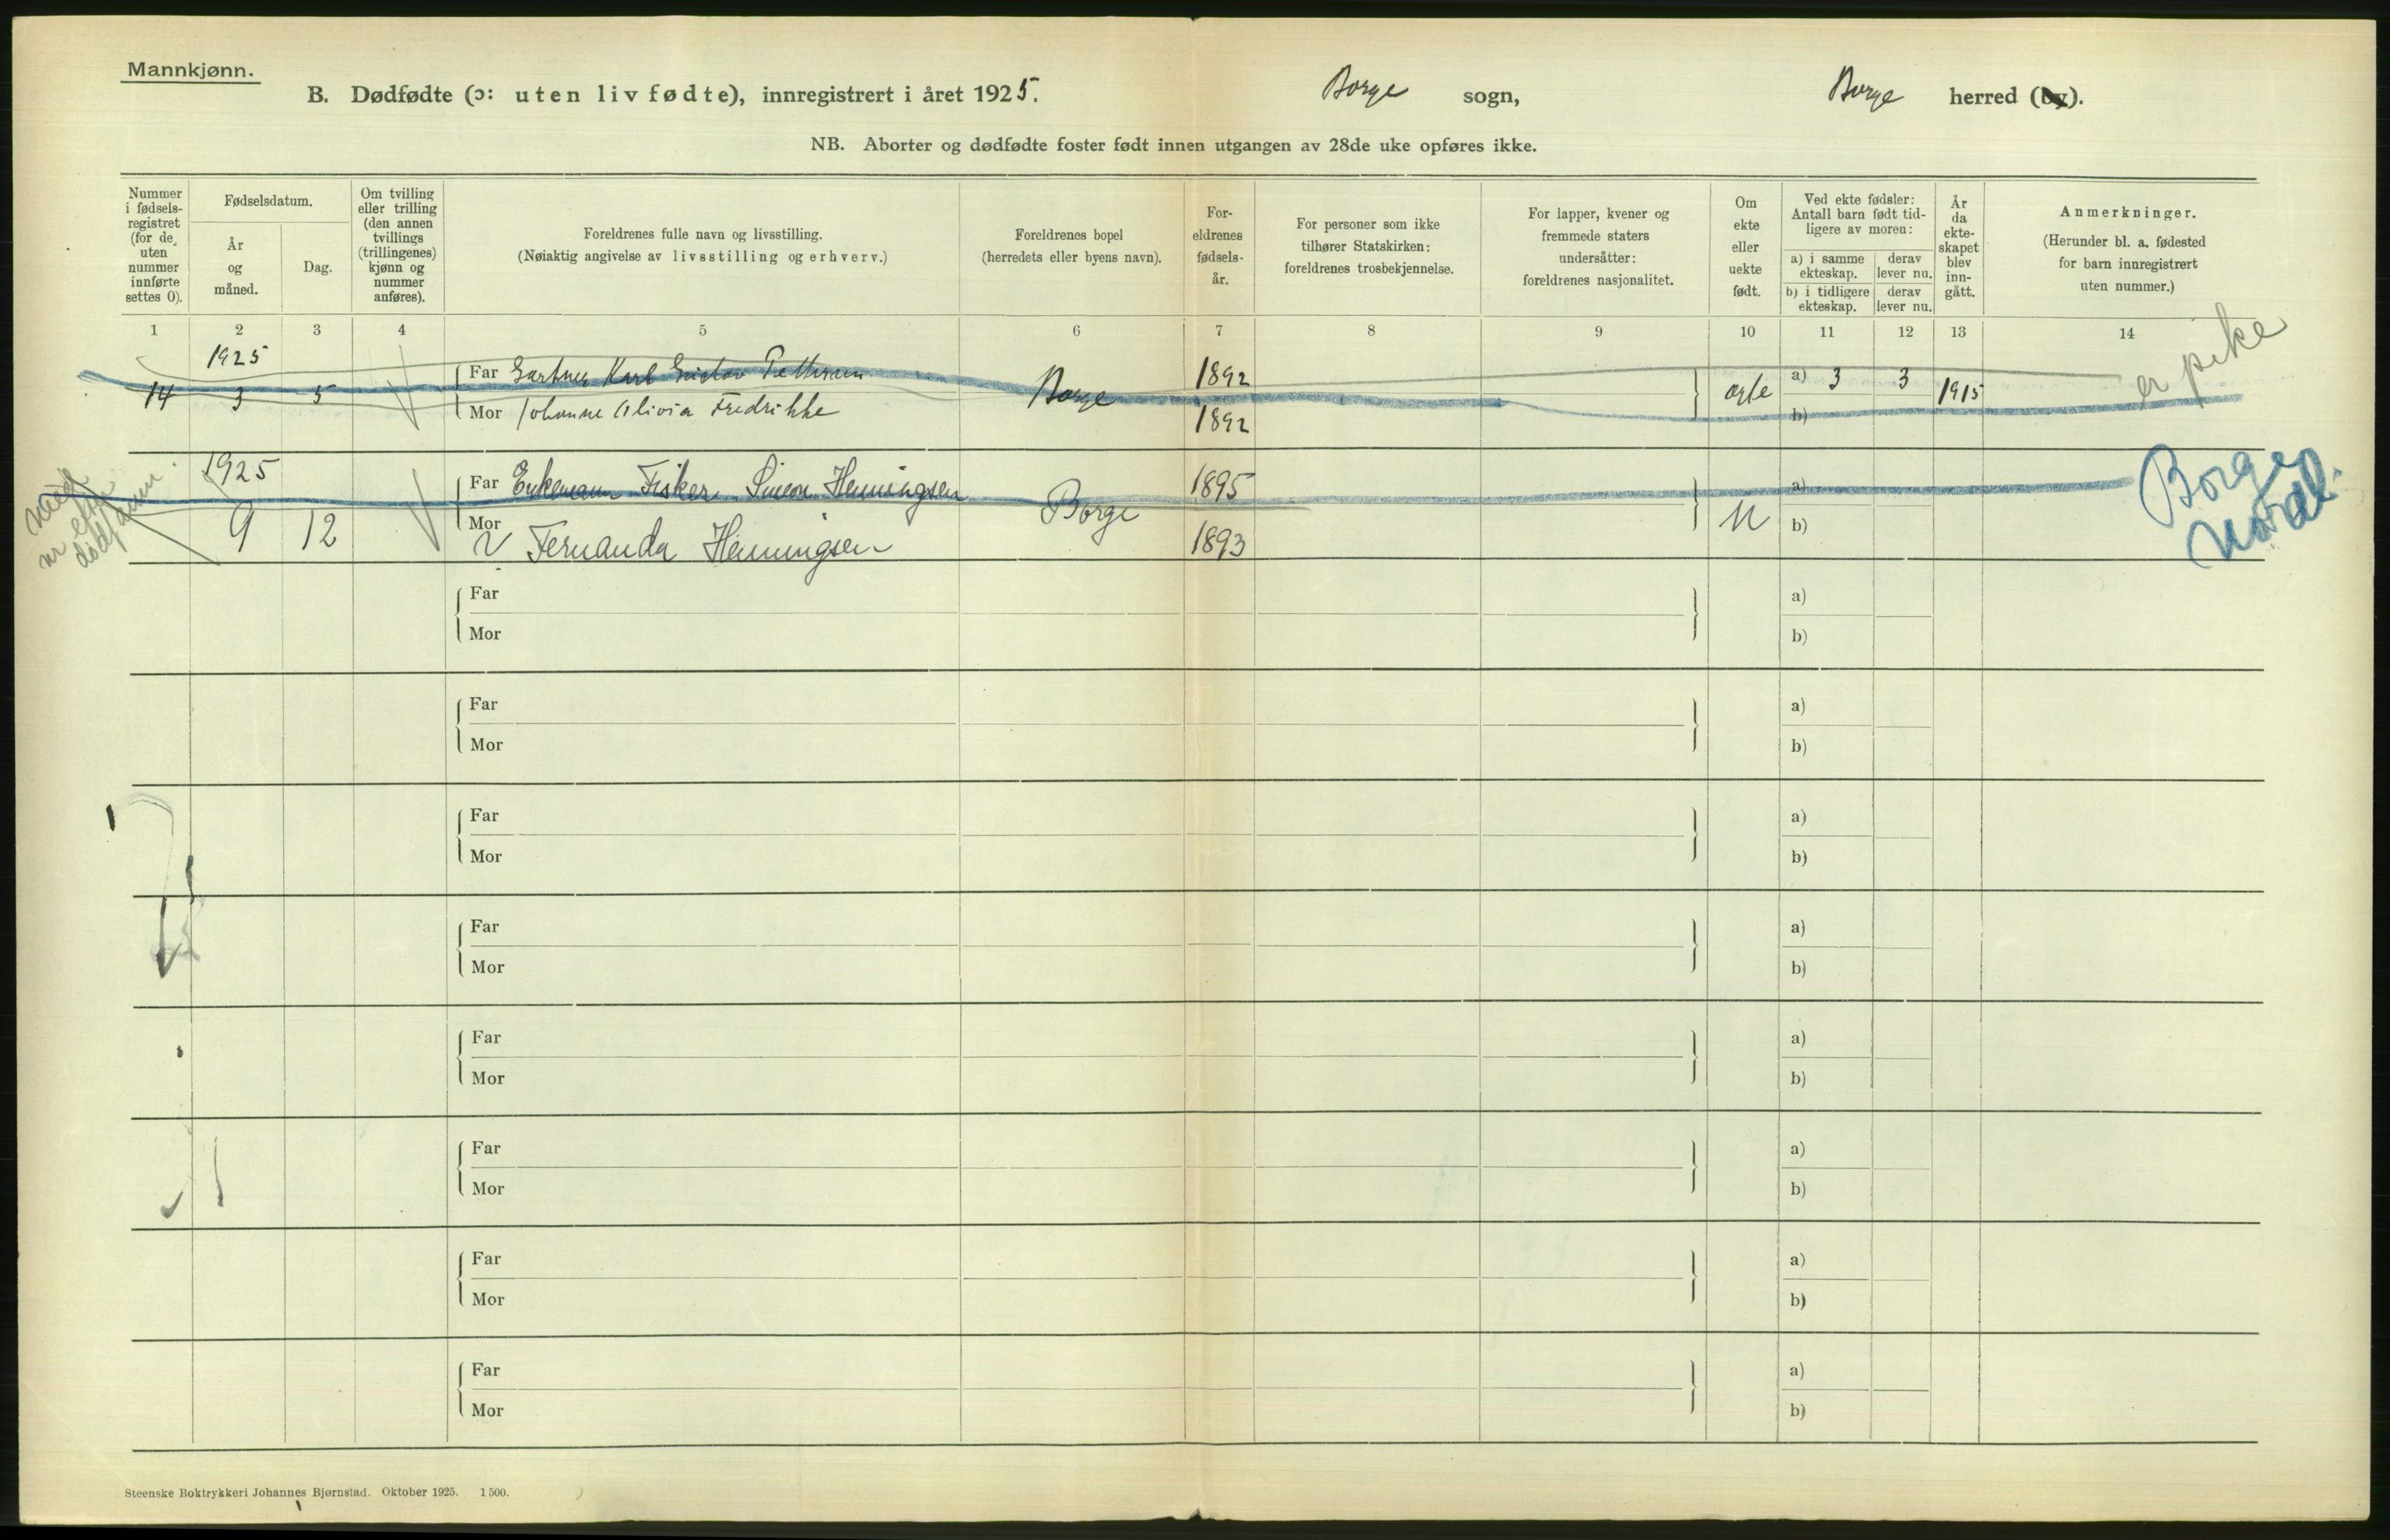 Mannkjønn.
B. Dødfødte (ɔ: uten liv fødte), innregistrert i året 1925. Borge sogn, Borge herred (by).
NB. Aborter og dødfødte foster født innen utgangen av 28de uke opføres ikke.
Nummer i fødsels-registret (for de uten nummer innførte settes 0).
Fødselsdatum.
År og måned.
Dag.
Om tvilling eller trilling (den annen tvillings (trillingenes) kjønn og nummer anføres).
Foreldrenes fulle navn og livsstilling.
(Nøiaktig angivelse av livsstilling og erhverv.)
Foreldrenes bopel
(herredets eller byens navn).
For-eldrenes fødsels-år.
For personer som ikke tilhører Statskirken: foreldrenes trosbekjennelse.
For lapper, kvener og fremmede staters undersåtter: foreldrenes nasjonalitet.
Om ekte eller uekte født.
Ved ekte fødsler: Antall barn født tid-ligere av moren:
a) i samme ekteskap.
derav lever nu.
b) i tidligere ekteskap.
derav lever nu.
År da ekte-skapet blev inn-gått.
Anmerkninger.
(Herunder bl. a. fødested for barn innregistrert uten nummer.)
1 2 3 4 5 6 7 8 9 10 11 12 13 14
1925
14 3 5
Far Gartner Karl Gustav Pettersen
Mor Johanne Olivia Fredrikke
Borge
1892
1892
a) 3 3 1915
b)
er pike
1925
9 12
Far Enkemann Fisker Simeon Henningsen
Mor Fernanda Henningsen
Borge
1895
1893
a)
b)
Borge
Nordl.
Far a)
Mor b)
Far a)
Mor b)
Far a)
Mor b)
Far a)
Mor b)
Far a)
Mor b)
Far a)
Mor b)
Far a)
Mor b)
Far a)
Mor b)
Steenske Boktrykkeri Johannes Bjørnstad. Oktober 1925. 1500.